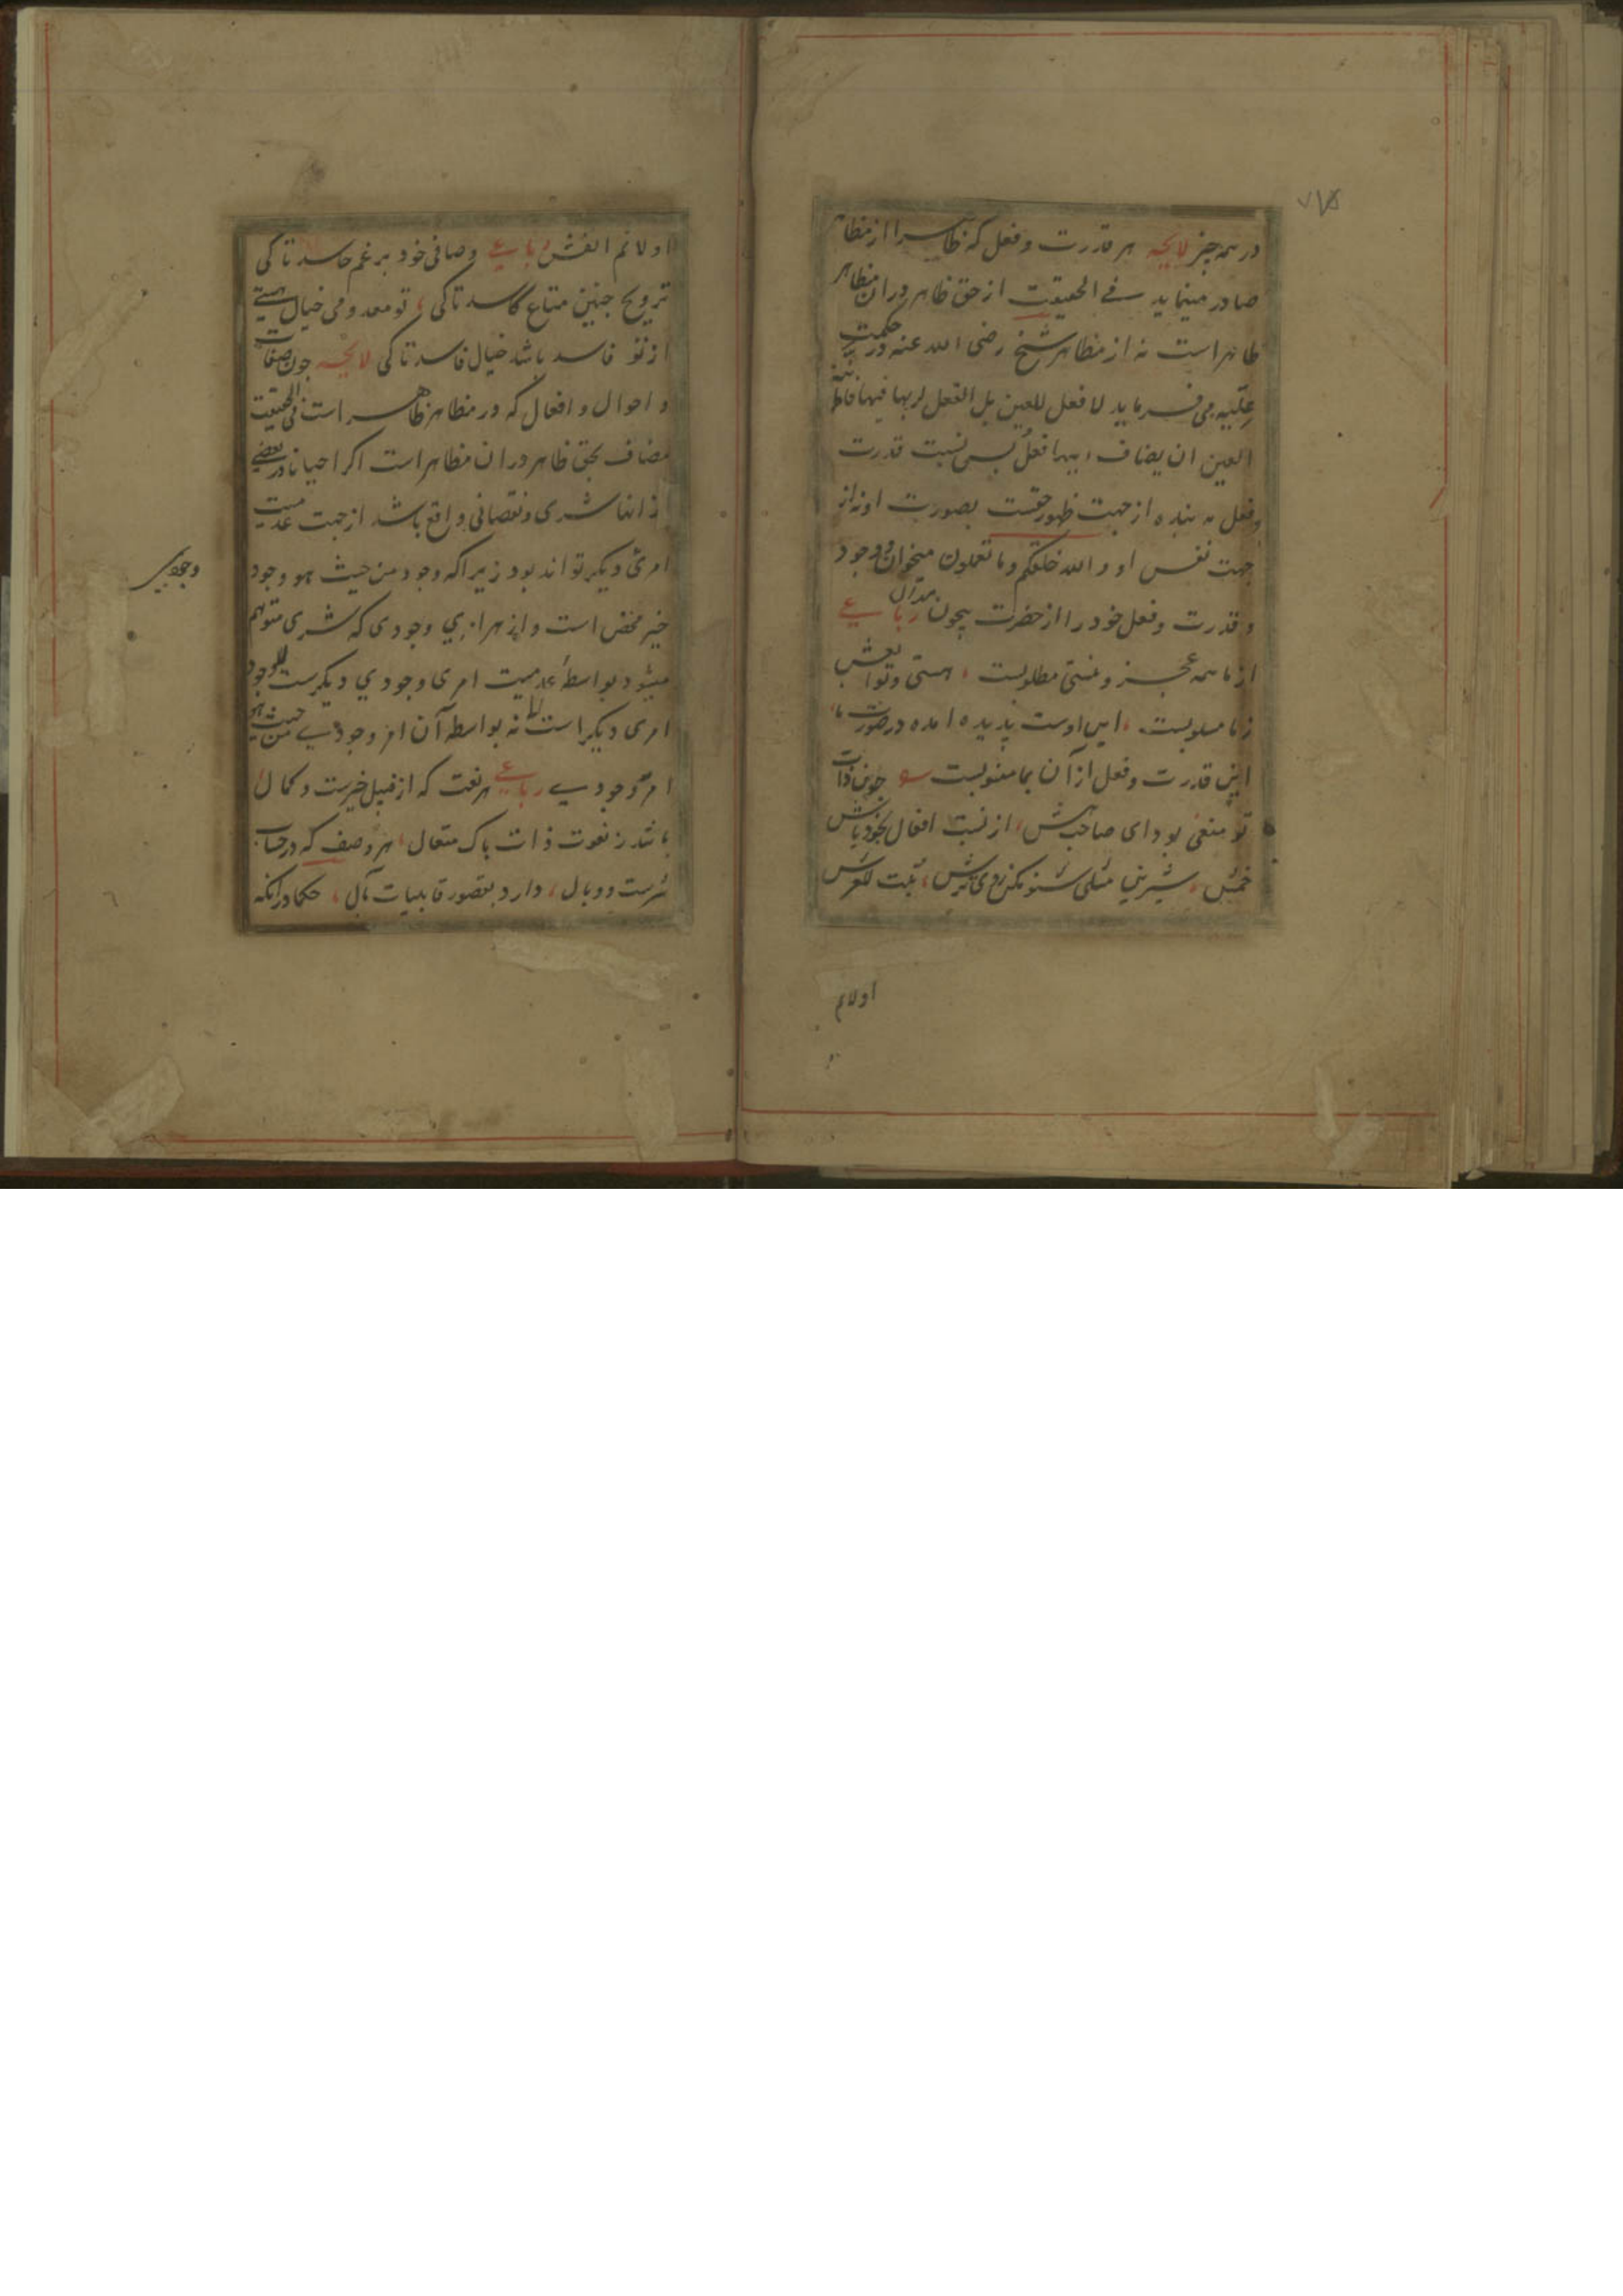 در همه چیز لایحه هر قدرت و فعل که ظاهرا از مظاهر
صادر مینماید فی الحقیقت از حق ظاهر در ان مظاهر
ظاهر است نه از مظاهر شیخ رضی الله عنه در حکمت
علّیه می فرماید لا فعل للعین بل الفعل لربها فیها فاطمئنة
العین ان یضاف الیها فعلٌ پس نسبت قدرت
و فعل به بنده از جهت ظهور حقست بصورت او نه از
جهت نفس او و الله خلقکم و ما تعملون میخوان و وجود
و قدرت و فعل خود را از حضرت بیچون میدان رباعی
از ما همه عجز و نیستی مطلوبست هستی و توابعش
ز ما مسلوبست این اوست پدید آمده در صورت ما
این قدرت و فعل از آن بما منسوبست چون ذات
تو منفی بود ای صاحب هش از نسبت افعال بخود باش
خمش شیرین مثلی شنو مکن روی ترش ثبت العرش
اولا ثم
۷۸
اولا ثم انقش رباعی وصافی خود برغم حاسد تا کی
ترویج چنین متاع کاسد تا کی تو معدومی خیال هستی
از تو فاسد باشد خیال فاسد تا کی لایحه چون صفات
و احوال و افعال که در مظاهر ظاهر است فی الحقیقت
مضاف بحق ظاهر در ان مظاهر است اگر احیانا در بعضی
از انها شری و نقصانی واقع باشد از جهت عدمیت
امری دیگر تواند بود زیرا که وجود من حیث هو وجود
خیر محض است و از هر امری وجودی که شری متوهم
میشود بواسطهٔ عدمیت امری وجودی دیگرست لا وجود
امری دیگر است نه بواسطه آن امر وجودی من حیث هو
امر وجودی رباعی هر نعت که از قبیل خیرست و کمال
باشد ز نعوت ذات پاک متعال هر وصف که در حساب
شرست و وبال دارد بقصور قابلیات مآل حکما در انکه
وجودی